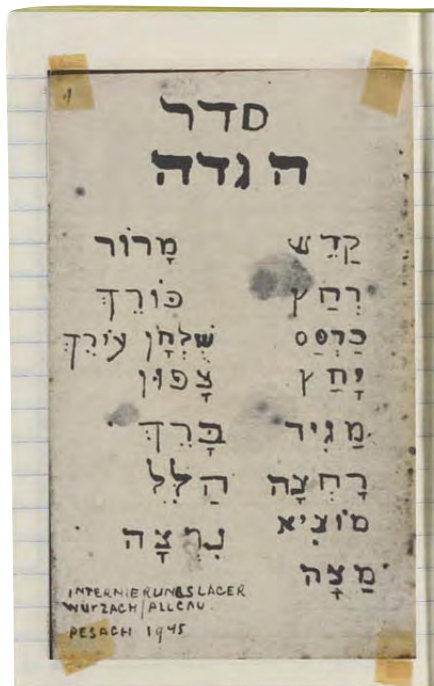 1
סדר
הגדה
קַדֵשׁ
רְחַץ
כַּרְפַּס
יָחַץ
מַגִיד
רָחְצָה
מוֹצִיא
מַצָה
מָרוֹר
כּוֹרֵךְ
שֻׁלְחָן עוֹרֵךְ
צָפוּן
בָּרֵךְ
הַלֵל
נִרְצָה
INTERNIERUNGSLAGER
WURZACH/ALLGAU.
PESACH 1945